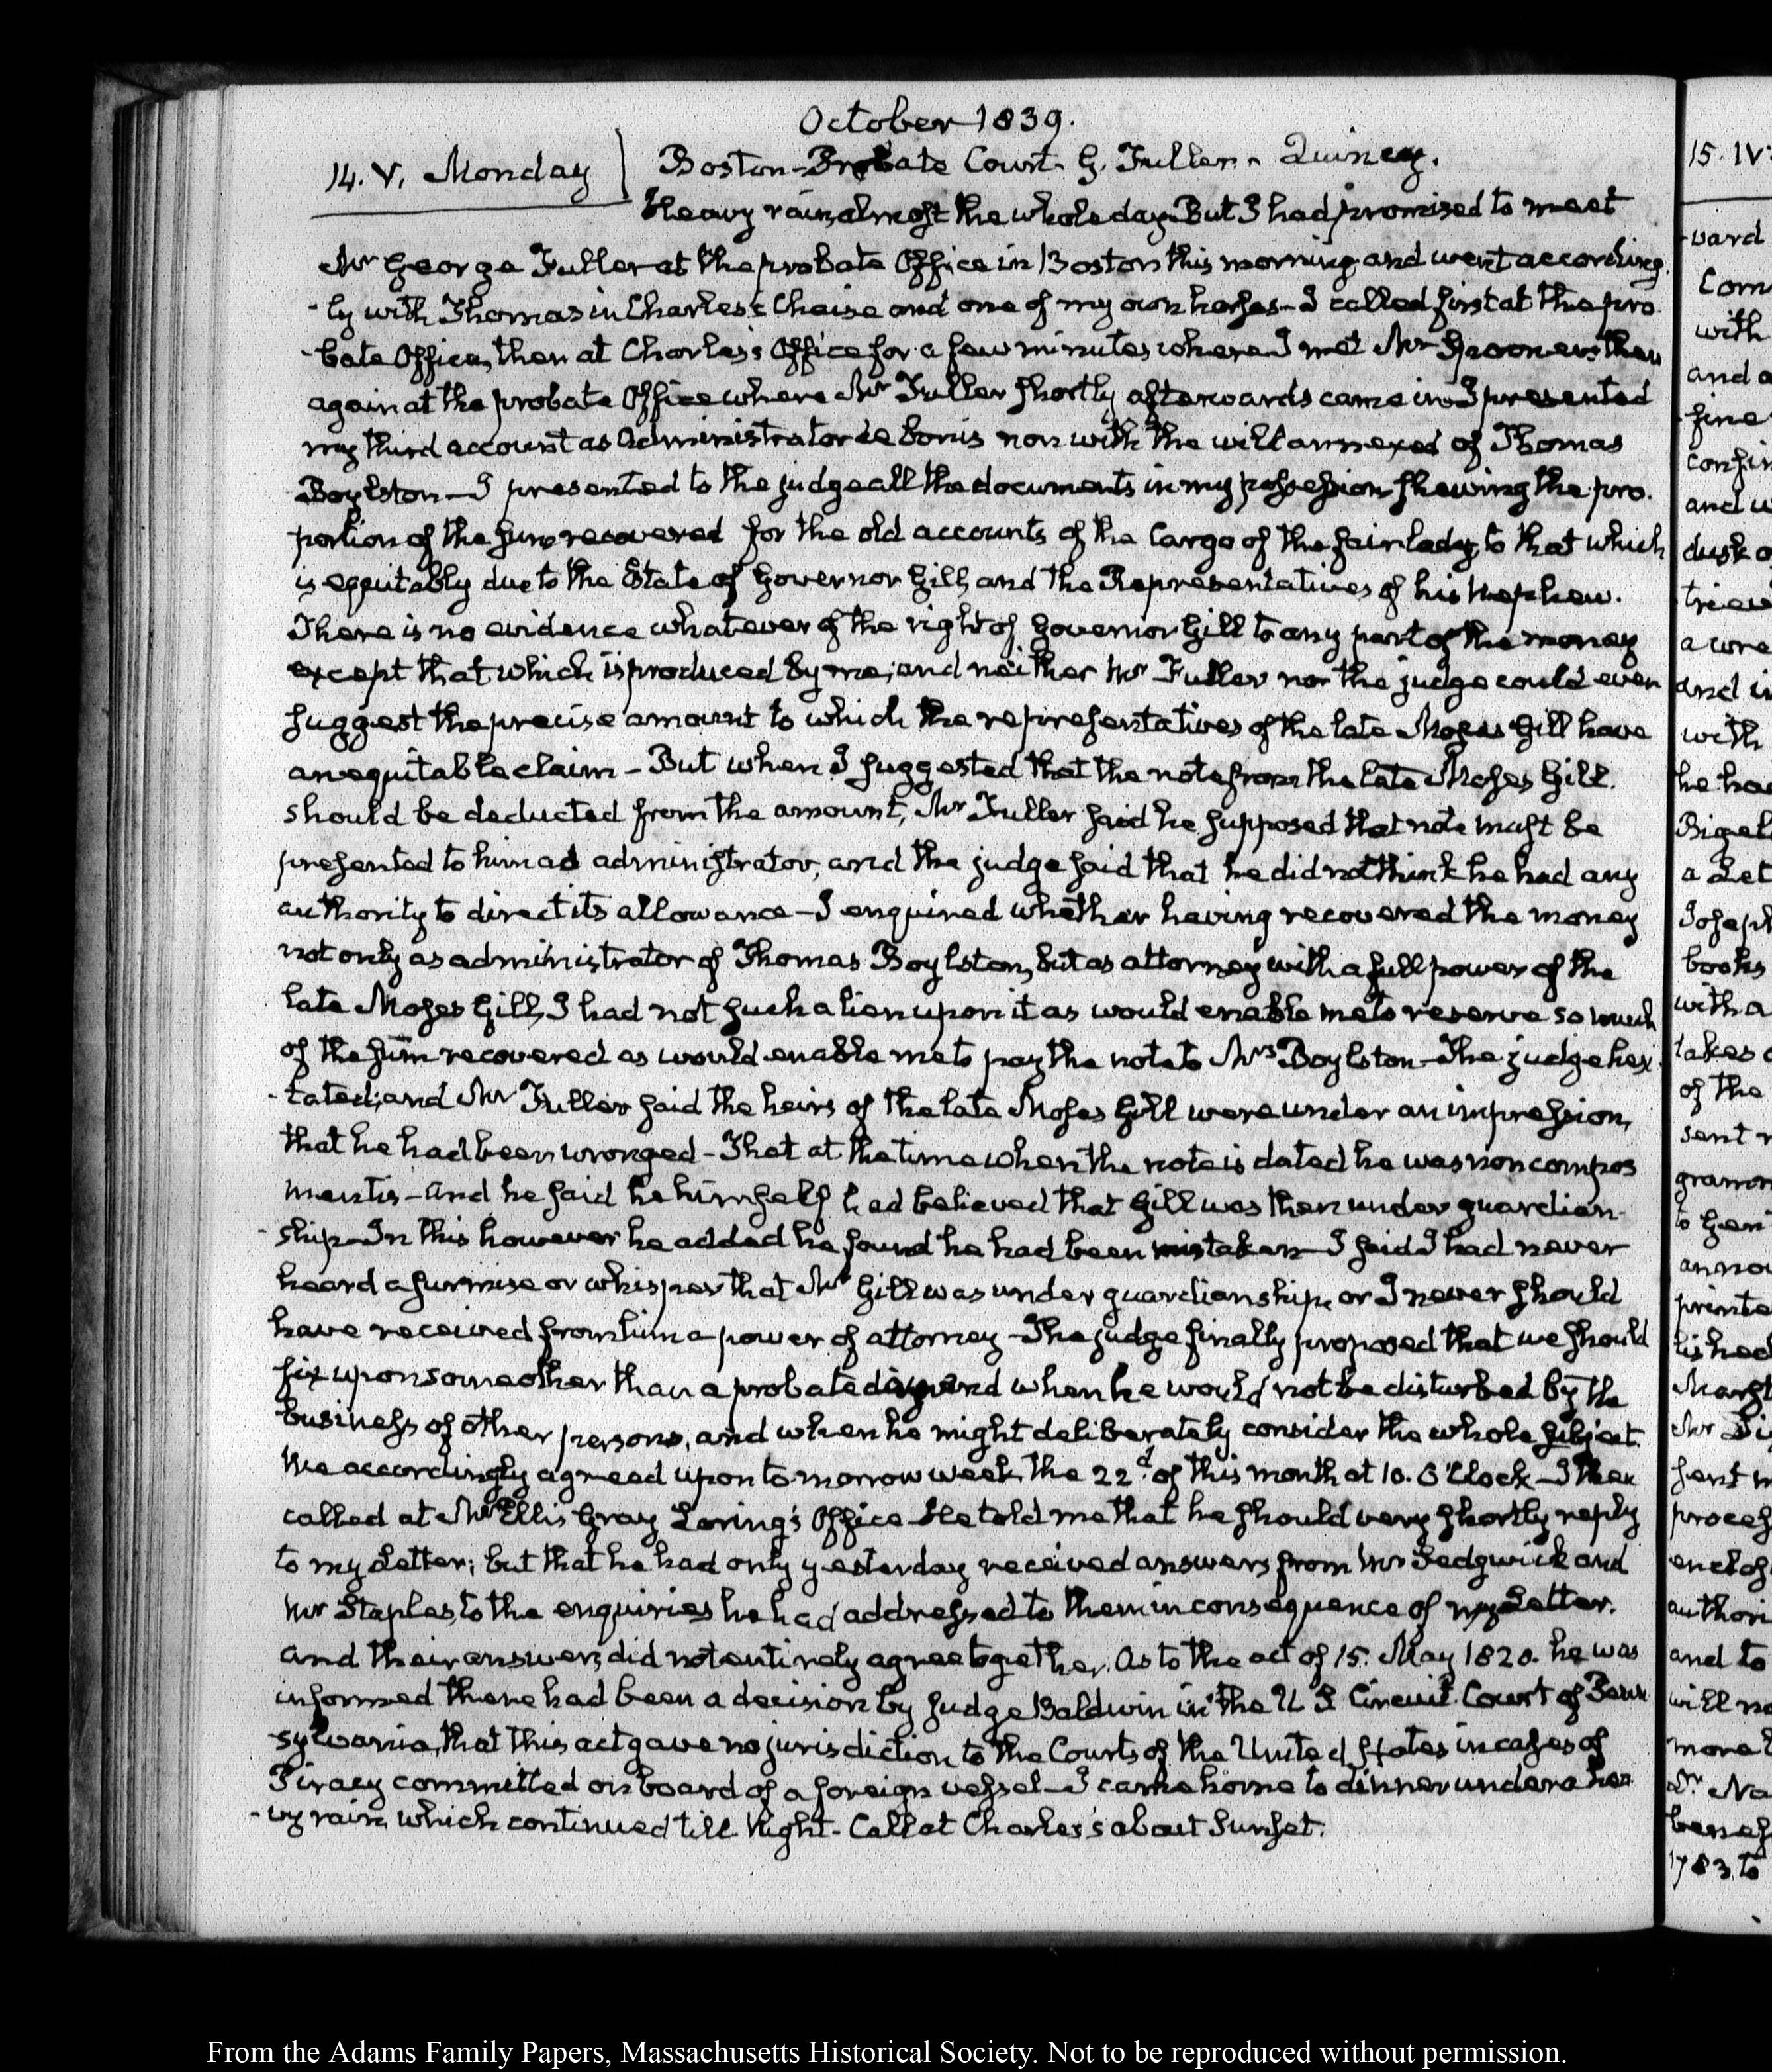 October 1839.
14. V. Monday
Boston - Probate Court. G. Fuller. Quincy.
Heavy rain, almost the whole day. But I had promised to meet
Mr George Fuller at the probate Office in Boston this morning, and went according-
-ly with Thomas in Charles's Chaise and one of my own horses - I called first at the pro-
-bate Office, then at Charles's Office for a few minutes where I met Mr Spooner, then
again at the probate Office where Mr Fuller shortly afterwards came in. I presented
my third account as administrator de bonis non with the will annexed of Thomas
Boylston - I presented to the judge all the documents in my possession shewing the pro-
portion of the sum recovered for the old accounts of the Cargo of the fair lady, to that which
is equitably due to the Estate of Governor Gill, and the Representatives of his Nephew.
There is no evidence whatever of the right of Governor Gill to any part of the money
except that which is produced by me; and neither Mr Fuller nor the judge could even
suggest the precise amount to which the representatives of the late Moses Gill have
an equitable claim - But when I suggested that the note from the late Moses Gill
should be deducted from the amount, Mr Fuller said he supposed that note must be
presented to him as administrator, and the judge said that he did not think he had any
authority to direct its allowance - I enquired whether having recovered the money
not only as administrator of Thomas Boylston, but as attorney with a full power of the
late Moses Gill, I had not such a lien upon it as would enable me to reserve so much
of the sum recovered as would enable me to pay the note to Mrs Boylston - The judge hesi-
-tated; and Mr Fuller said the heirs of the late Moses Gill were under an impression,
that he had been wronged - That at the time when the note is dated he was non compos
mentis - and he said he himself had believed that Gill was then under guardian-
-ship - In this however he added he found he had been mistaken - I said I had never
heard a surmise or whisper that Mr Gill was under guardianship, or I never should
have received from him a power of attorney - The judge finally proposed that we should
fix upon some other than a probate day and when he would not be disturbed by the
business of other persons, and when he might deliberately consider the whole subject.
We accordingly agreed upon to-morrow week, the 22d of this month at 10. O'Clock - I then
called at Mr Ellis Gray Loring's Office - He told me that he should very shortly reply
to my Letter; but that he had only yesterday received answers from Mr Sedgwick and
Mr Staples, to the enquiries he had addressed to them in consequence of my Letter.
and their answers did not entirely agree together. As to the act of 15. May 1820. he was
informed there had been a decision by Judge Baldwin in the U S Circuit Court of Penn
-sylvania, that this act gave no jurisdiction to the Courts of the United States in cases of
Piracy committed on board of a foreign vessel - I came home to dinner under a hea-
-vy rain, which continued till Night - Call at Charles's about Sunset.
15. IV
-vard
Com
with
and a
fine
confir
and w
dusk o
a wre
and in
with
he had
Bigel
a Let
Joseph
books
with a
takes
of the
sent
gramm
to Gen
anno
printe
lished
Marsh
sent m
proces
authori
and to
will no
more
Dr Na
benef
1783. to
From the Adams Family Papers, Massachusetts Historical Society. Not to be reproduced without permission.